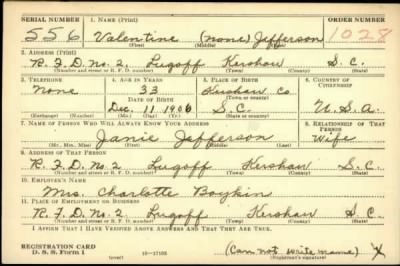 SERIAL NUMBER 1. NAME (Print) ORDER NUMBER
556 Valentine (none) Jefferson 1028
(First) (Middle) (Last)
2. ADDRESS (Print)
R.F.D. No. 2. Lugoff Kershaw S.C.
(Number and street or R. F. D. number) (Town) (County) (State)
3. TELEPHONE 4. AGE IN YEARS 5. PLACE OF BIRTH 6. COUNTRY OF CITIZENSHIP
None 33 Kershaw Co.
DATE OF BIRTH (Town or county)
Dec. 11 1906 S.C. U.S.A.
(Exchange) (Number) (Mo.) (Day) (Yr.) (State or country)
7. NAME OF PERSON WHO WILL ALWAYS KNOW YOUR ADDRESS 8. RELATIONSHIP OF THAT PERSON
Janie Jefferson Wife
(Mr., Mrs., Miss) (First) (Middle) (Last)
9. ADDRESS OF THAT PERSON
R.F.D. No. 2 Lugoff Kershaw S.C.
(Number and street or R. F. D. number) (Town) (County) (State)
10. EMPLOYER'S NAME
Mrs. Charlotte Boykin
11. PLACE OF EMPLOYMENT OR BUSINESS
R.F.D. No. 2. Lugoff Kershaw S.C.
(Number and street or R. F. D. number) (Town) (County) (State)
I AFFIRM THAT I HAVE VERIFIED ABOVE ANSWERS AND THAT THEY ARE TRUE.
REGISTRATION CARD
D. S. S. Form 1 (over) 16—17105 (Can not write name) X
(Registrant's signature)